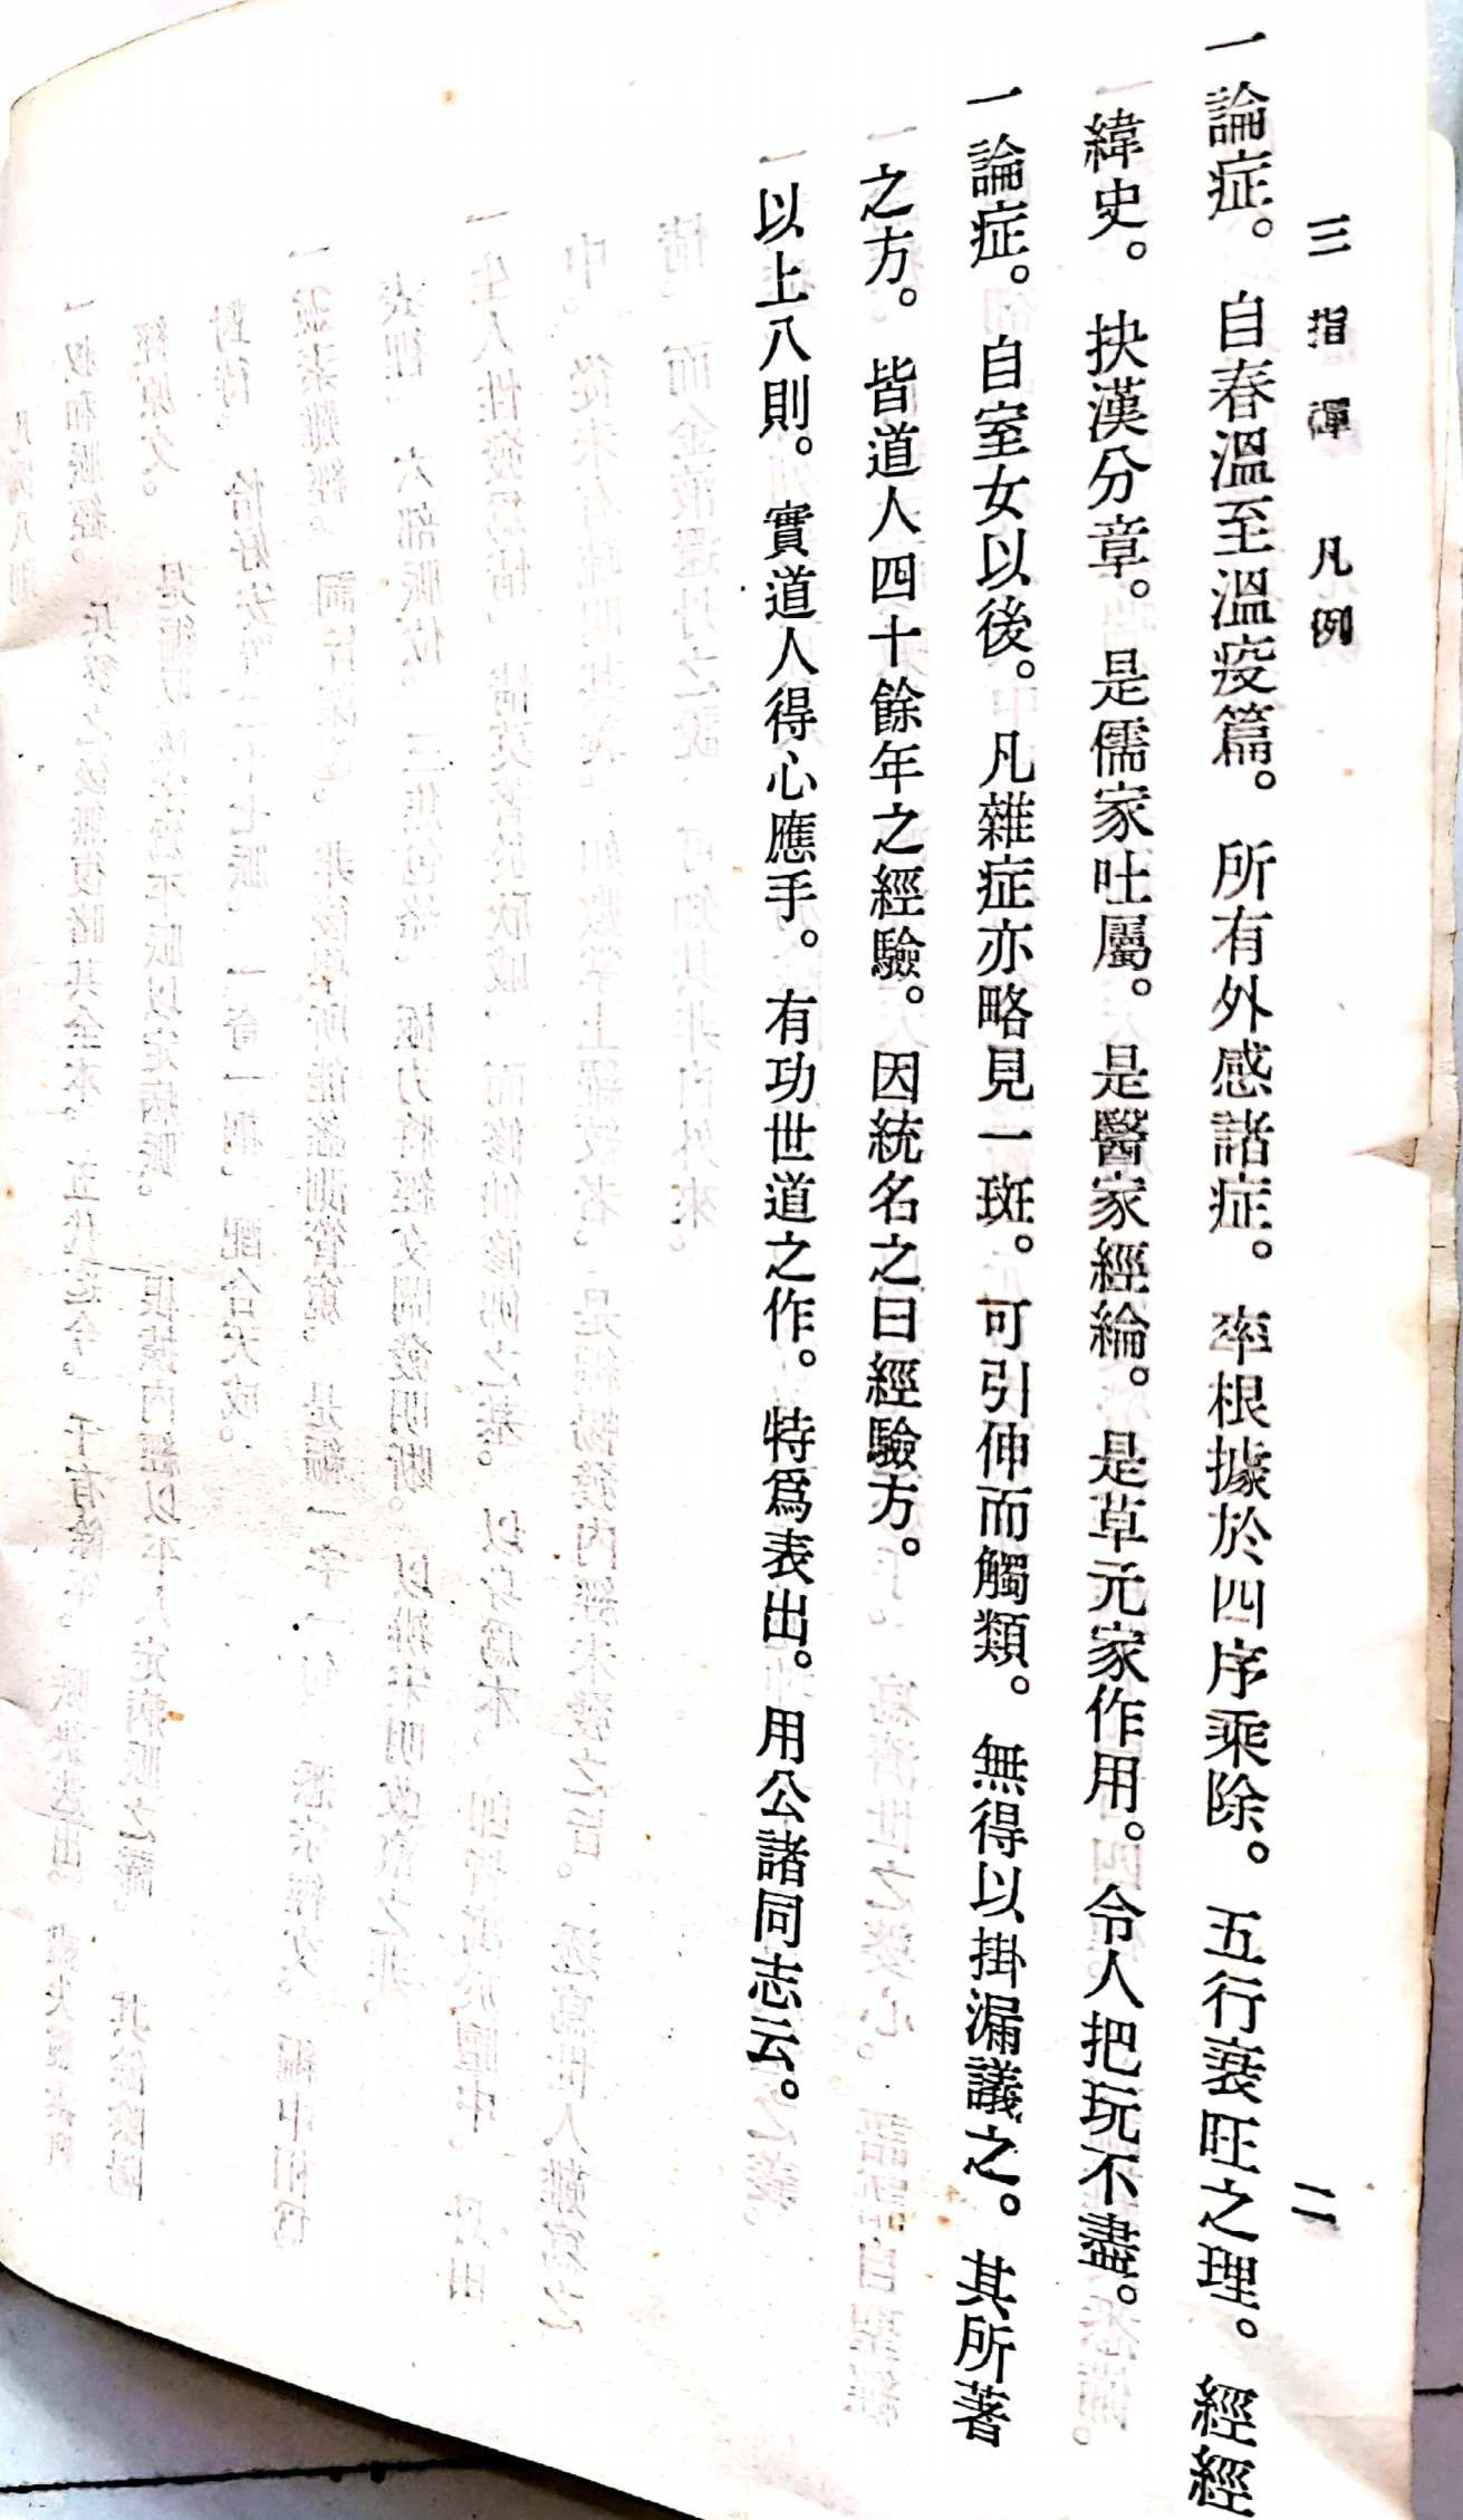 三指禪 凡例 二
一論症。自春溫至溫疫篇。所有外感諸症。率根據於四序乘除。五行衰旺之理。經經
緯史。抉漢分章。是儒家吐屬。是醫家經綸。是草元家作用。令人把玩不盡。
一論症。自室女以後。凡雜症亦略見一斑。可引伸而觸類。無得以掛漏議之。其所著
之方。皆道人四十餘年之經驗。因統名之曰經驗方。
一以上八則。實道人得心應手。有功世道之作。特爲表出。用公諸同志云。